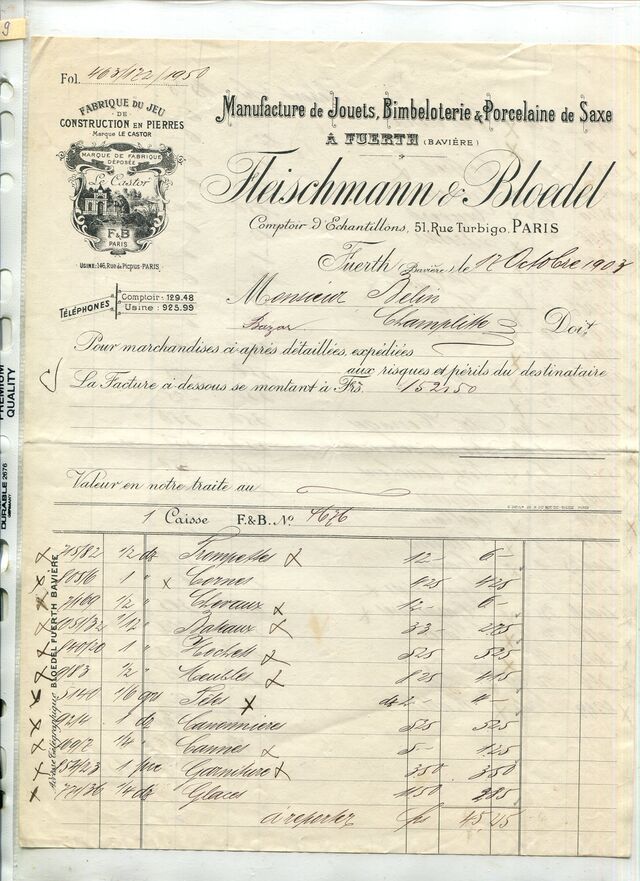 9
Fol. 463/122/1950
FABRIQUE DU JEU
DE
CONSTRUCTION EN PIERRES
Marque LE CASTOR
MARQUE DE FABRIQUE
DÉPOSÉE
Le Castor
F&B
PARIS
USINE: 146, Rue de Picpus-PARIS-
TÉLÉPHONES
Comptoir : 129.48
Usine : 925.99
Manufacture de Jouets, Bimbeloterie & Porcelaine de Saxe
À FUERTH (BAVIÈRE)
Fleischmann & Bloedel
Comptoir d'Echantillons, 51, Rue Turbigo, PARIS
Fuerth (Bavière), le 17 Octobre 1903
Monsieur Belin
Bazar Champlitte Doit
Pour marchandises ci-après détaillées, expédiées
aux risques et périls du destinataire
La Facture ci-dessous se montant à Frs. 152,50
Valeur en notre traite au
1 Caisse F.&B. No. 4676
PREMIUM
QUALITY
DURABLE 2676
BLOEDEL FUERTH BAVIÈRE
1/2 dz Trompettes 12 - 6 -
1 " Cornes 4 25 4 25
1/2 " Chevaux 12 - 6 -
1/12 " Bateaux 33 - 2 75
1 " Hochets 5 25 5 25
1/2 " Meubles 8 25 4 15
1/6 gro Têtes dz 2 - 4 -
1 dz Canonnieres 5 25 5 25
1/4 " Cannes 5 - 1 25
1 Garniture 3 50 3 50
1/4 dz Glaces 11 50 2 85
à reporter frs 45,25